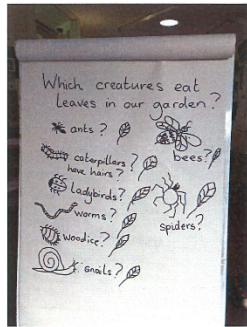 Which creatures eat
leaves in our garden?
ants?
caterpillars?
have hairs?
ladybirds?
worms?
woodlice?
snails?
bees?
spiders?